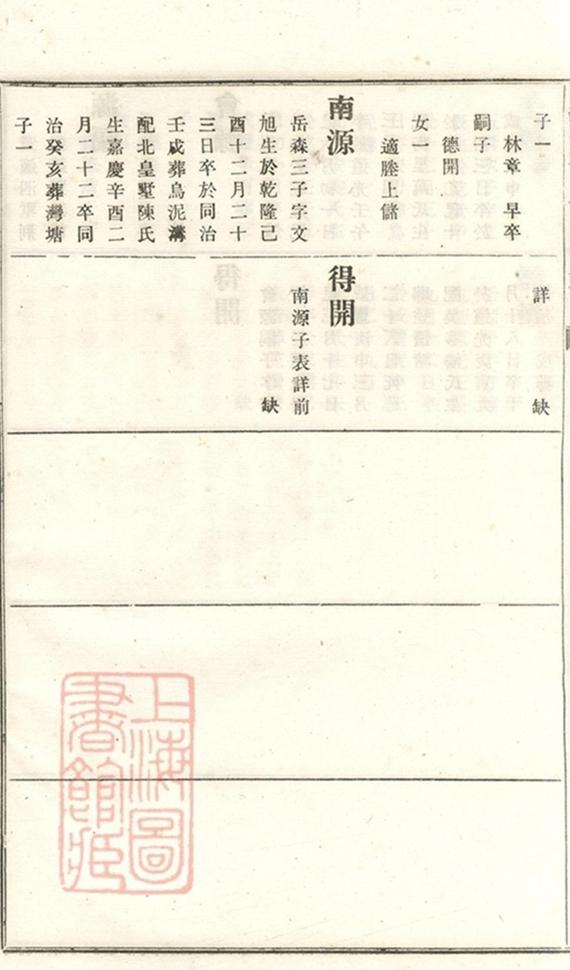 子一
林章 早卒
嗣子
德開
女一
適塍上儲
南源
岳森三子字文
旭生於乾隆己
酉十二月二十
三日卒於同治
壬戌葬烏泥溝
配北皇墅陳氏
生嘉慶辛酉二
月二十二卒同
治癸亥葬灣塘
子一
詳 缺
得開
南源子表詳前
缺
上海圖
書館臧